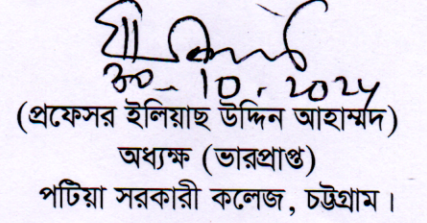 30-10.2024
(প্রফেসর ইলিয়াছ উদ্দিন আহাম্মদ)
অধ্যক্ষ (ভারপ্রাপ্ত)
পটিয়া সরকারী কলেজ, চট্টগ্রাম।